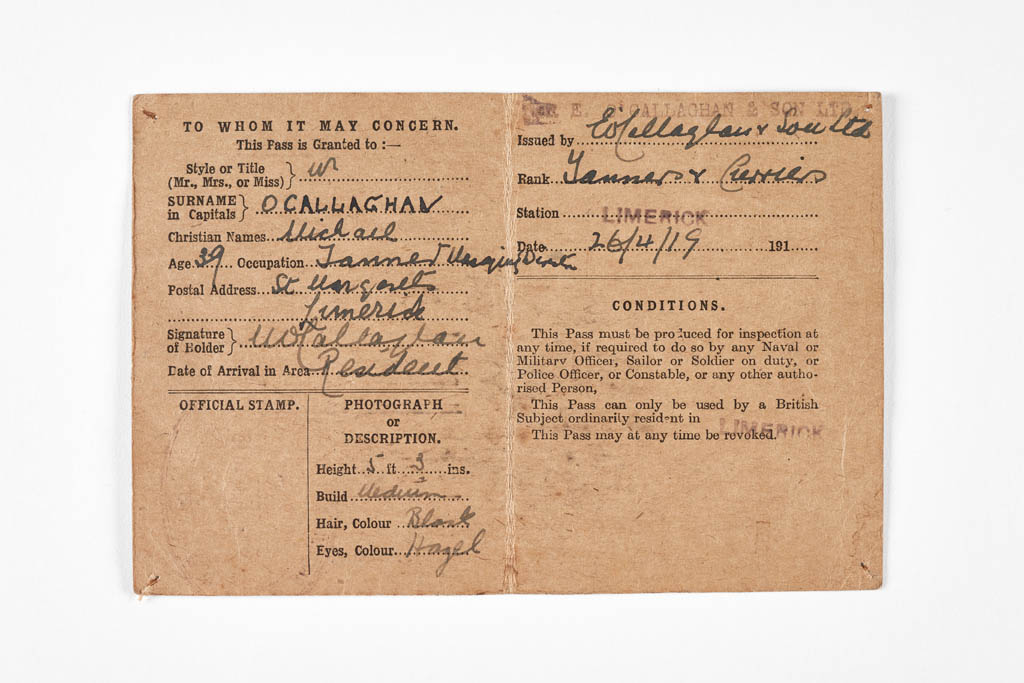 TO WHOM IT MAY CONCERN.
This Pass is Granted to :—
Style or Title
(Mr., Mrs., or Miss)
SURNAME
in Capitals } OCALLAGHAN
Christian Names Michael
Age 39 Occupation Tanner
Postal Address St Margarets
Limerick
Signature
of Holder } MO'Callaghan
Date of Arrival in Area Resident
OFFICIAL STAMP.
PHOTOGRAPH
or
DESCRIPTION.
Height 5 ft 3 ins.
Build Medium
Hair, Colour Black
Eyes, Colour Hazel
E. O'CALLAGHAN & SON LTD.
Issued by EO'Callaghan & Son Ltd
Rank Tanners & Curriers
Station LIMERICK
Date 26/4/19 191
CONDITIONS.
This Pass must be produced for inspection at
any time, if required to do so by any Naval or
Military Officer, Sailor or Soldier on duty, or
Police Officer, or Constable, or any other autho-
rised Person,
This Pass can only be used by a British
Subject ordinarily resident in LIMERICK
This Pass may at any time be revoked.